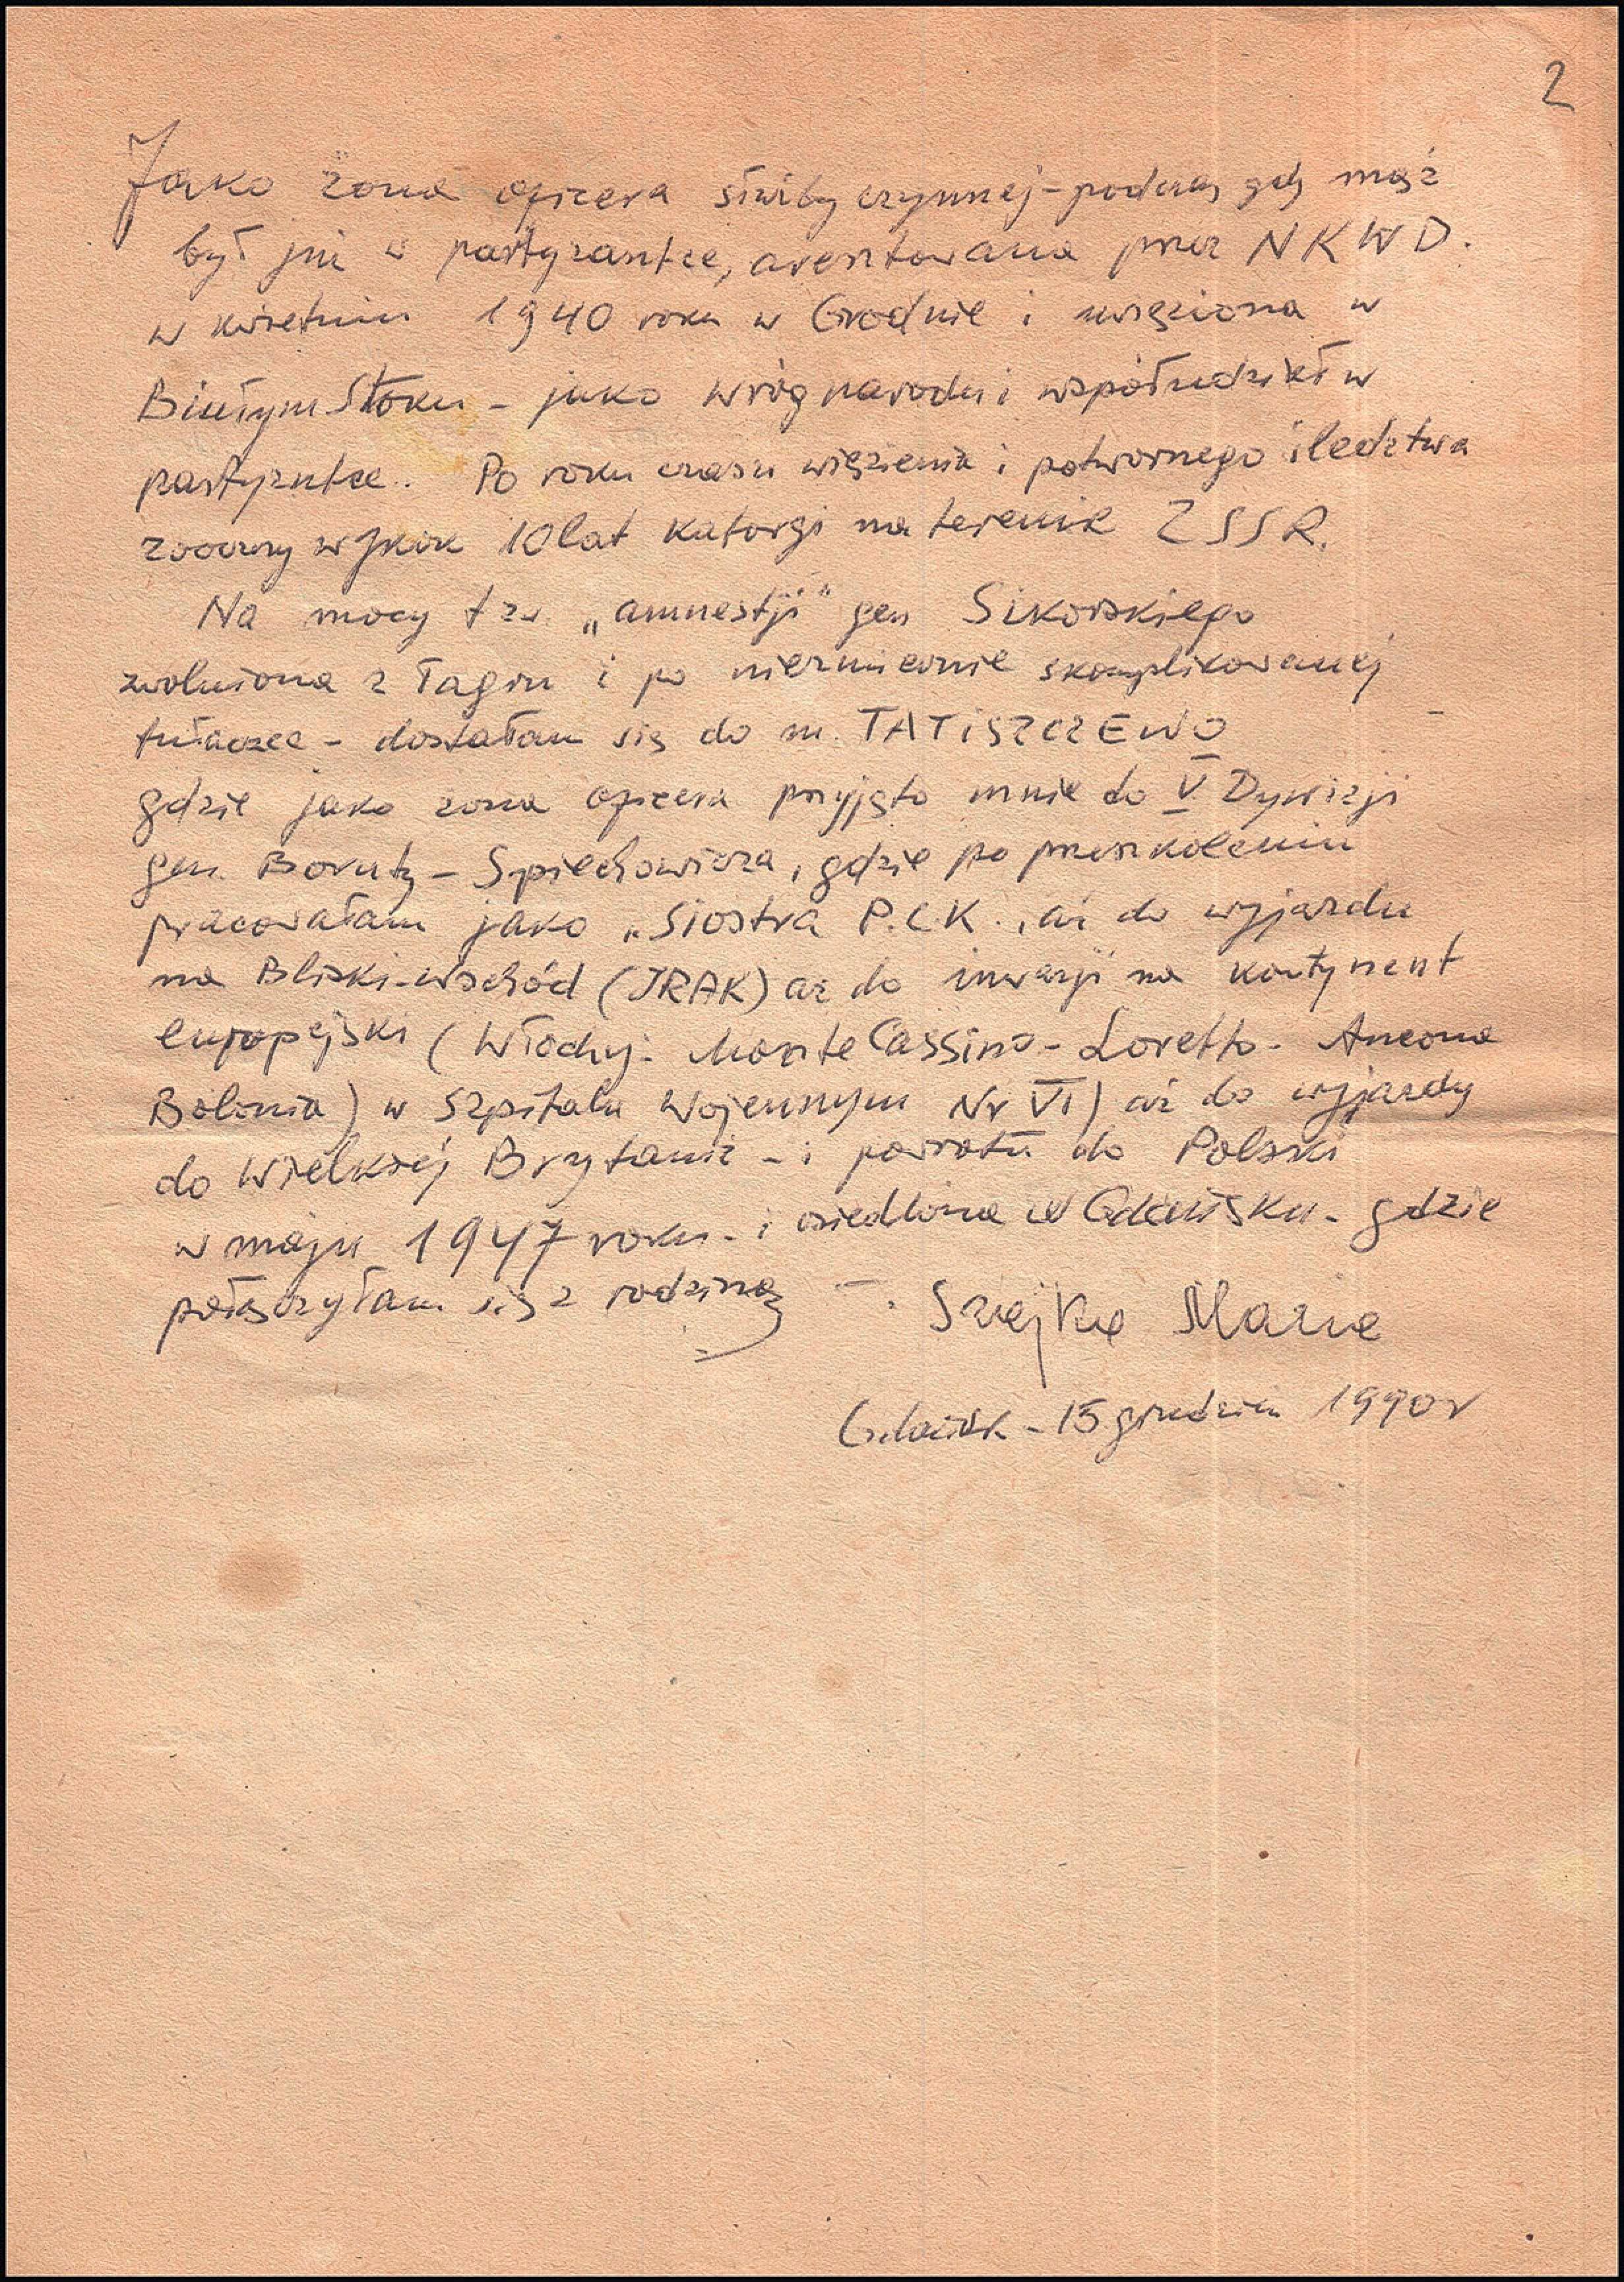 2
Jako żona oficera służby czynnej - podczas gdy mąż
był już w partyzantce, aresztowana przez NKWD.
w kwietniu 1940 roku w Grodnie i uwięziona w
Białym Stoku - jako wróg narodu i współudział w
partyzntce. Po roku czasu więzienia i potwornego śledztwa
zaoczny wyrok 10 lat katorgi na terenie ZSSR.
Na mocy tzw. „amnestji" gen Sikorskiego
zwolniona z łagru i po niezmiernie skomplikowanej
tułaczce - dostałam się do m. TATISZCZEWO
gdzie jako żona oficera przyjęto mnie do V Dywizji
gen. Boruty - Spiechowicza, gdzie po przeszkoleniu
pracowałam jako „Siostra P.C.K., aż do wyjazdu
na Bliski-Wschód (IRAK) aż do inwazji na kontynent
europejski (Włochy - Monte Cassino - Loretto - Ancona
Bolonia) w Szpitalu Wojennym Nr VI) aż do wyjazdy
do Wielkiej Brytanii - i powrotu do Polski
w maju 1947 roku - i osiedlona w Gdańsku - gdzie
połączyłam się z rodziną -.
Szejko Maria
Gdańsk - 15 grudzień 1990 r